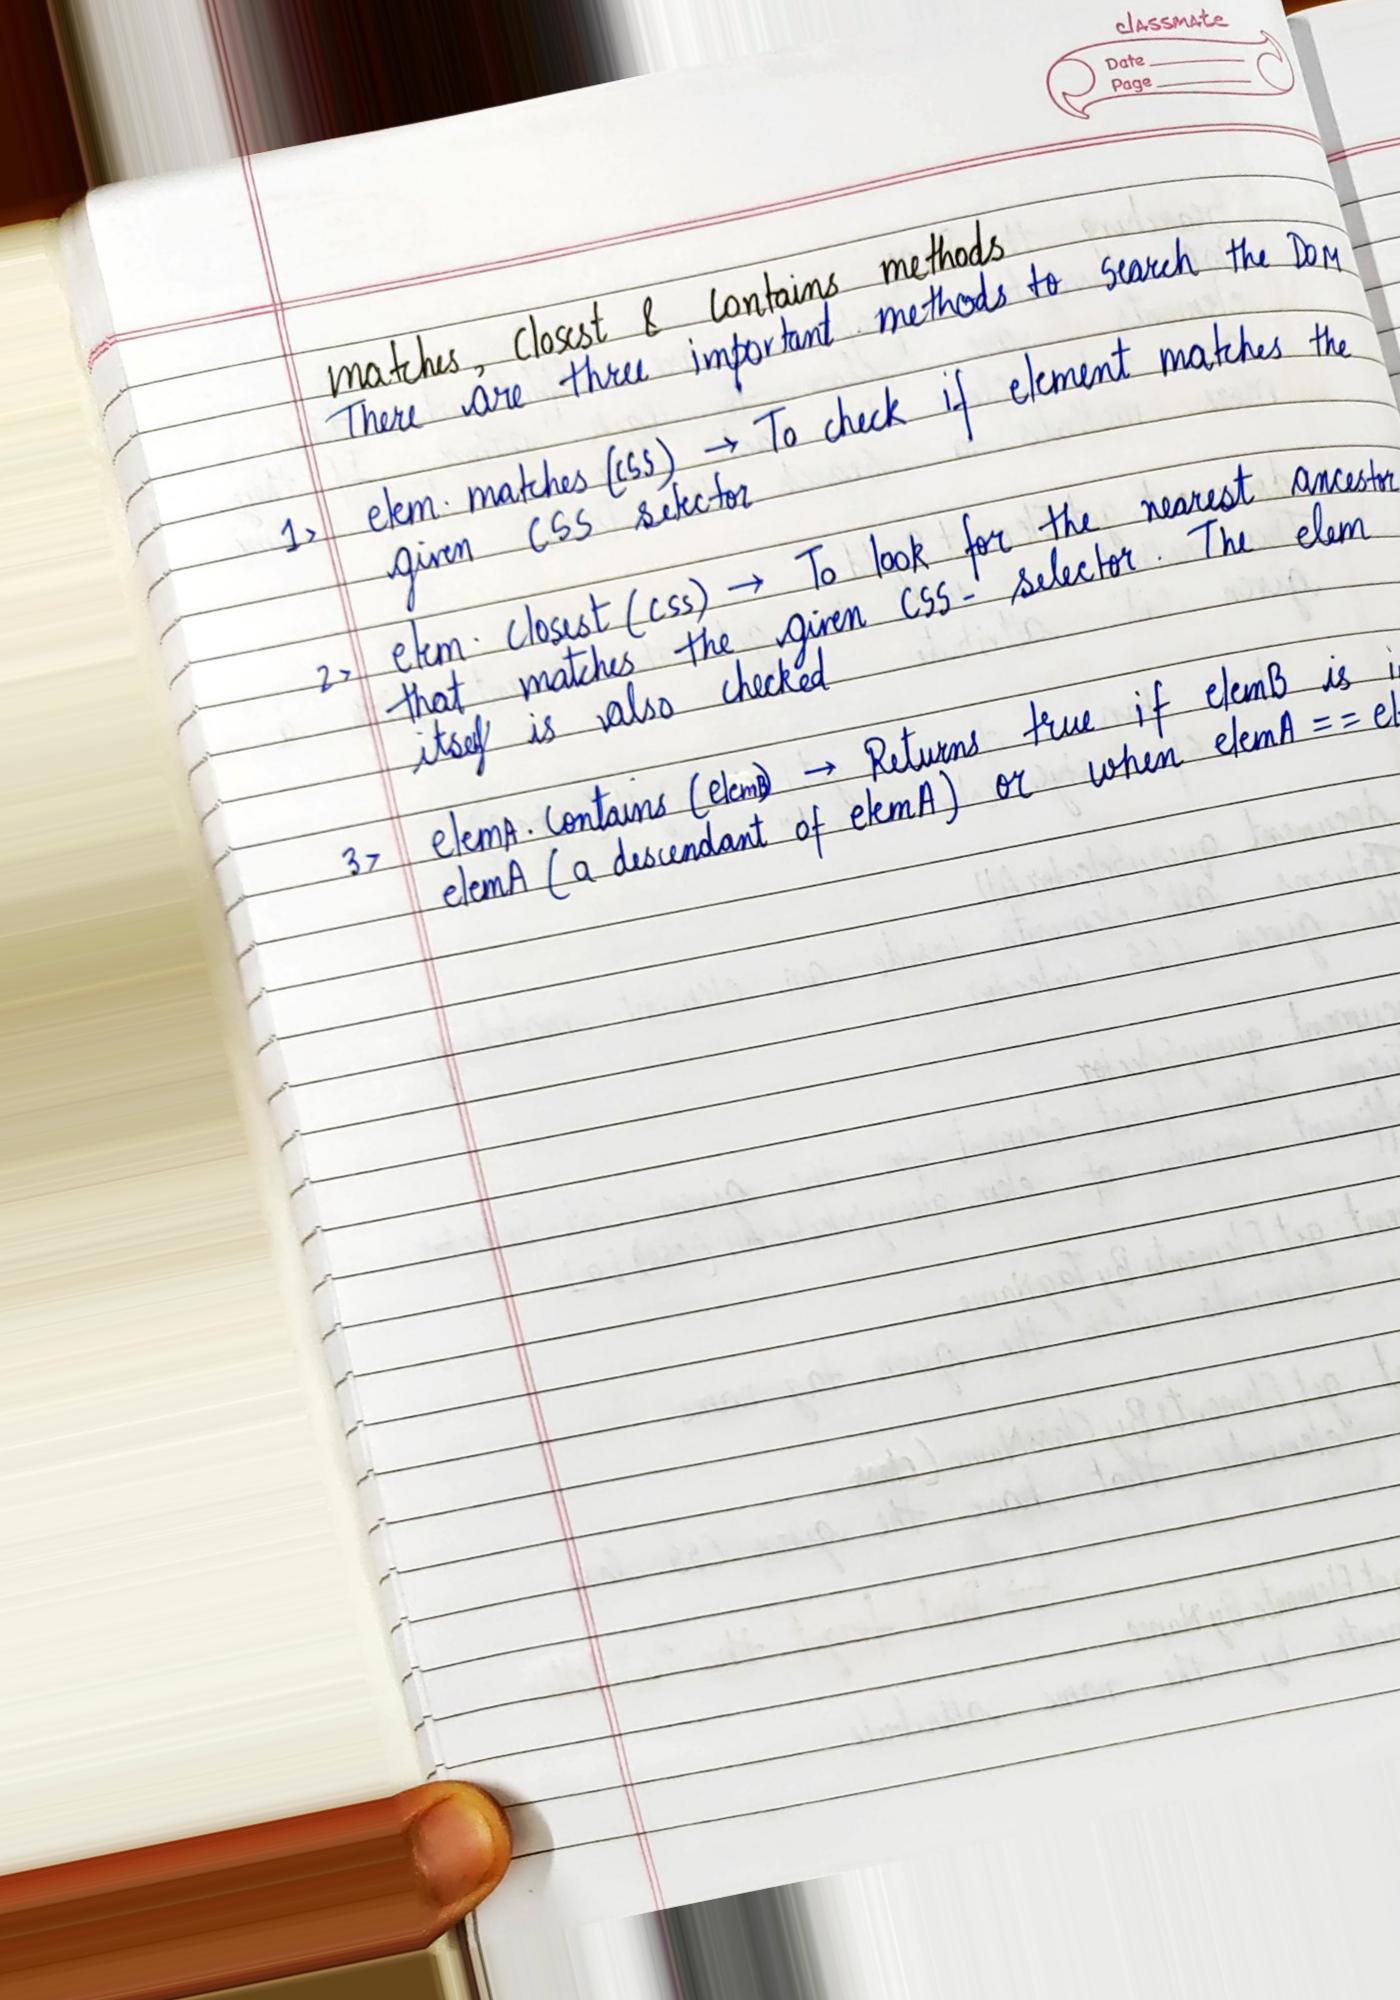 classmate
Date
Page
matches, closest & contains methods
There are three important methods to search the DOM
1> elem. matches (CSS) → To check if element matches the
given CSS selector
2> elem. closest (CSS) → To look for the nearest ancestor
that matches the given CSS- selector. The elem
itself is also checked
3> elemA. contains (elemB) → Returns true if elemB is
elemA (a descendant of elemA) or when elemA ==